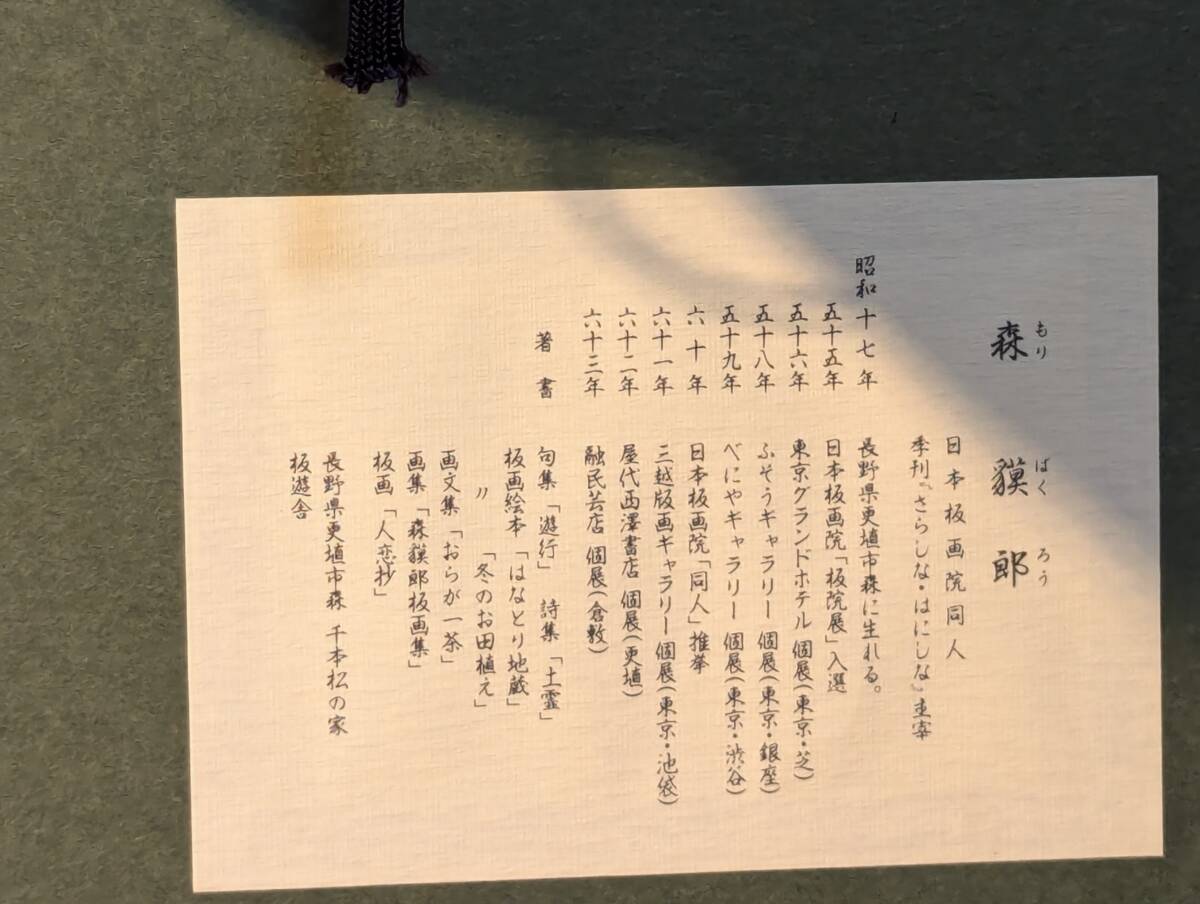 森 貘 郎
もり ばく ろう
日本板画院同人
季刊『さらしな・はにしな』主宰
昭和十七年 長野県更埴市森に生れる。
五十五年 日本板画院「板院展」入選
五十六年 東京グランドホテル 個展(東京・芝)
五十八年 ふそうギャラリー 個展(東京・銀座)
五十九年 べにやギャラリー 個展(東京・渋谷)
六十年 日本板画院「同人」推挙
六十一年 三越版画ギャラリー 個展(東京・池袋)
六十二年 屋代西澤書店 個展(更埴)
六十三年 融民芸店 個展(倉敷)
著書 句集「遊行」 詩集「土霊」
板画絵本「はなとり地蔵」
〃 「冬のお田植え」
画文集「おらが一茶」
画集「森貘郎板画集」
板画「人恋抄」
長野県更埴市森 千本松の家
板遊舎